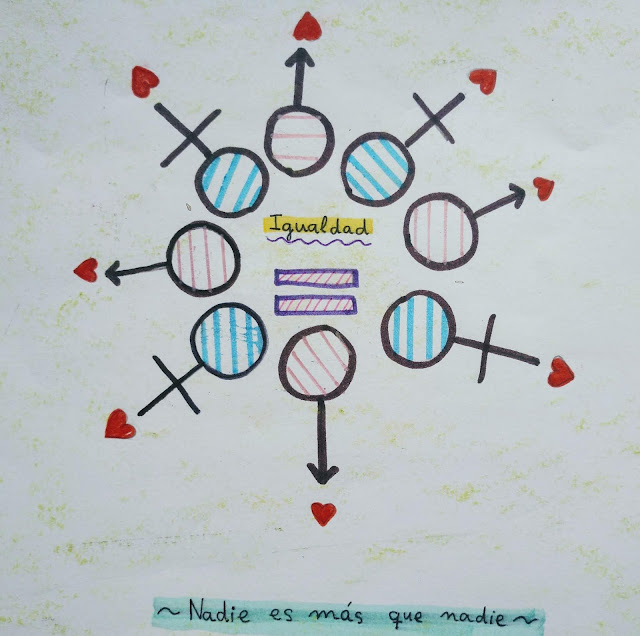 Igualdad
~ Nadie es más que nadie ~